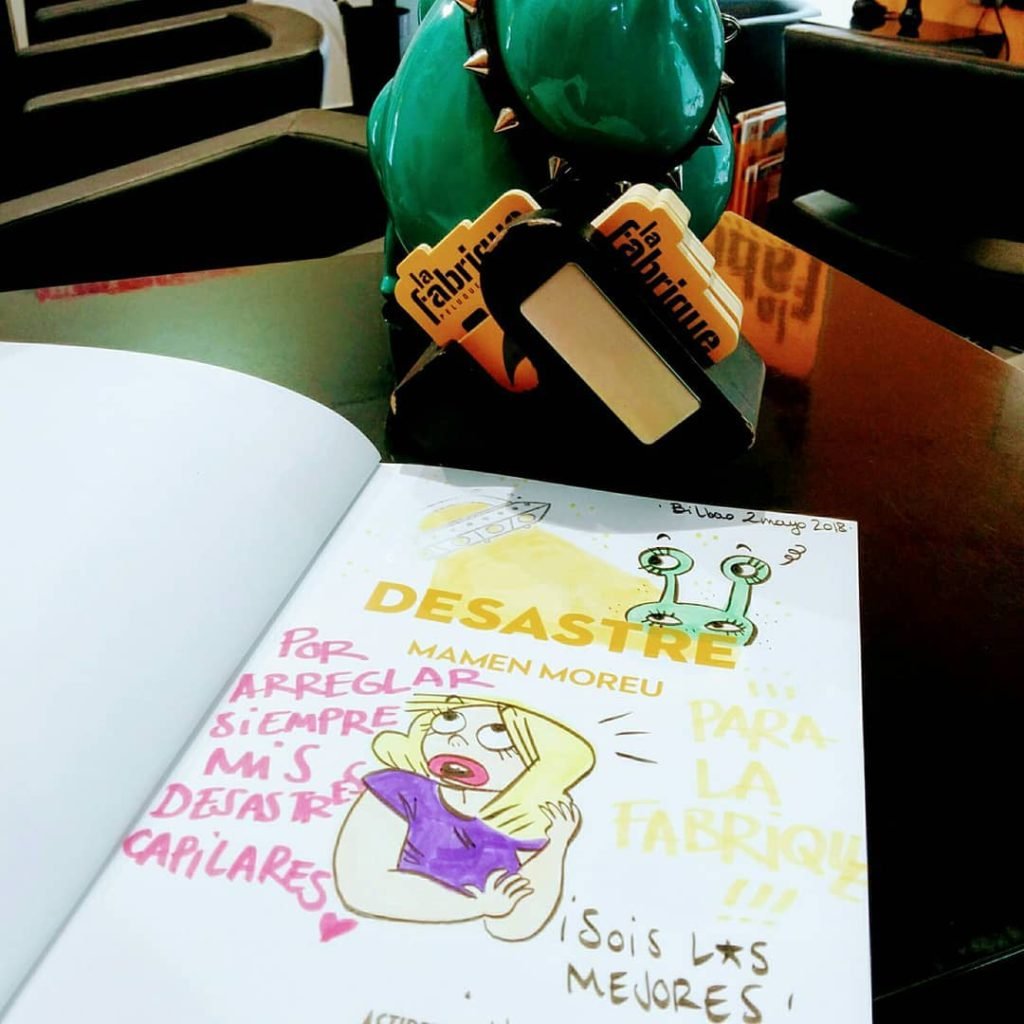 la
fabrique
la
fabrique.
Bilbao 2 mayo 2018.
DESASTRE
MAMEN MOREU
POR
ARREGLAR
SiEMPRE
MiS
DESASTRES
CAPiLARES
¡¡¡
PARA
LA
FABRIQUE
!!!
¡Sois L★S
MEJORES!